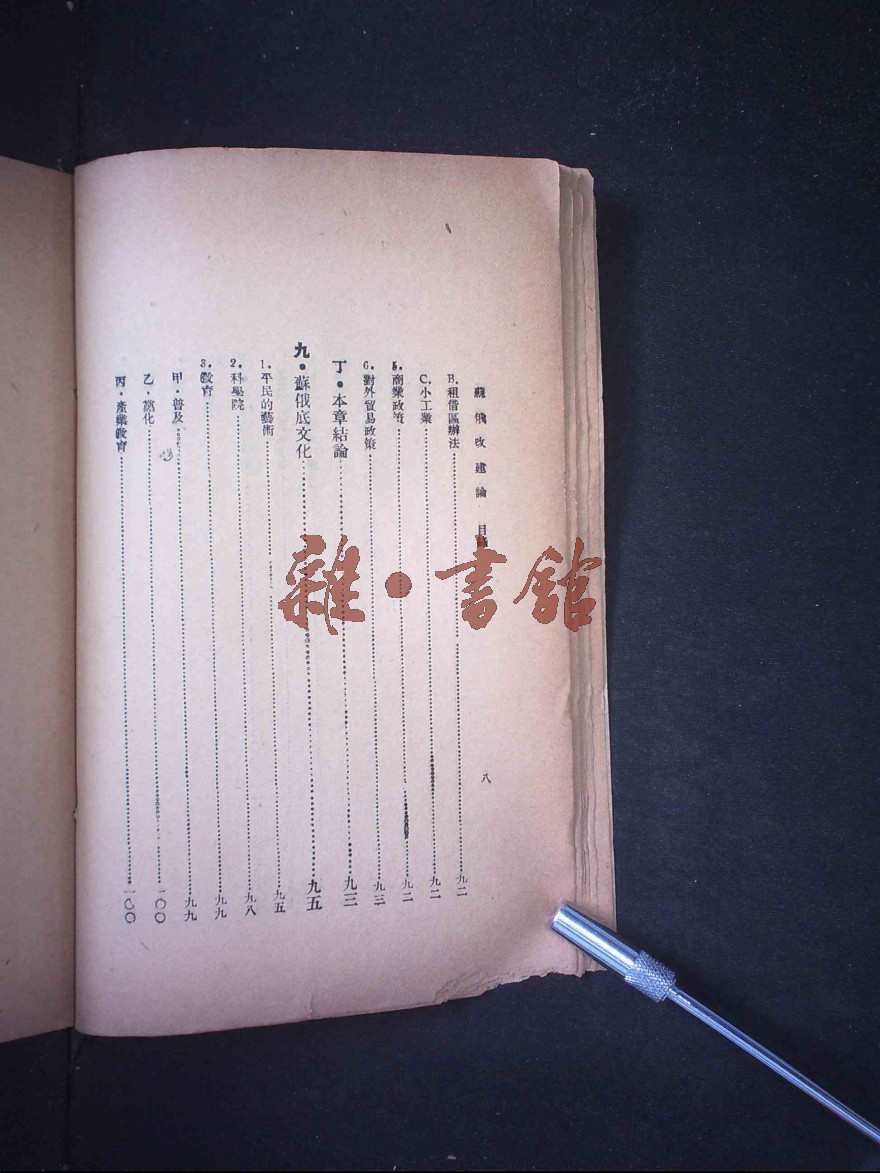 蘇俄改建論 目錄
八
B.租借區辦法……九二
C.小工業……九二
5.商業政策……九二
6.對外貿易政策……九三
丁・本章結論……九三
九・蘇俄底文化……九五
1.平民的藝術……九五
2.科學院……九八
3.教育……九九
甲・普及……九九
乙・黨化……一〇〇
丙・產業教育……一〇〇
雜・書館